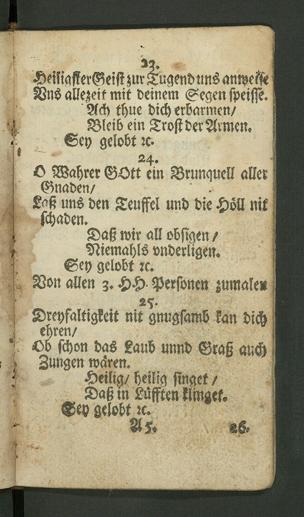 23.
Heiligster Geist zur Tugend uns anweise
Vns allezeit mit deinem Segen speisse.
Ach thue dich erbarmen/
Bleib ein Trost der Armen.
Sey gelobt ꝛc.
24.
O Wahrer GOtt ein Brunquell aller
Gnaden/
Laß uns den Teuffel und die Höll nit
schaden.
Daß wir all obsigen/
Niemahls vnderligen.
Sey gelobt ꝛc.
Von allen 3. H.H. Personen zumalen
25.
Dreyfaltigkeit nit gnugsamb kan dich
ehren/
Ob schon das Laub unnd Graß auch
Zungen wären.
Heilig/ heilig singet/
Daß in Lüfften klinget.
Sey gelobt ꝛc.
A5. 26.